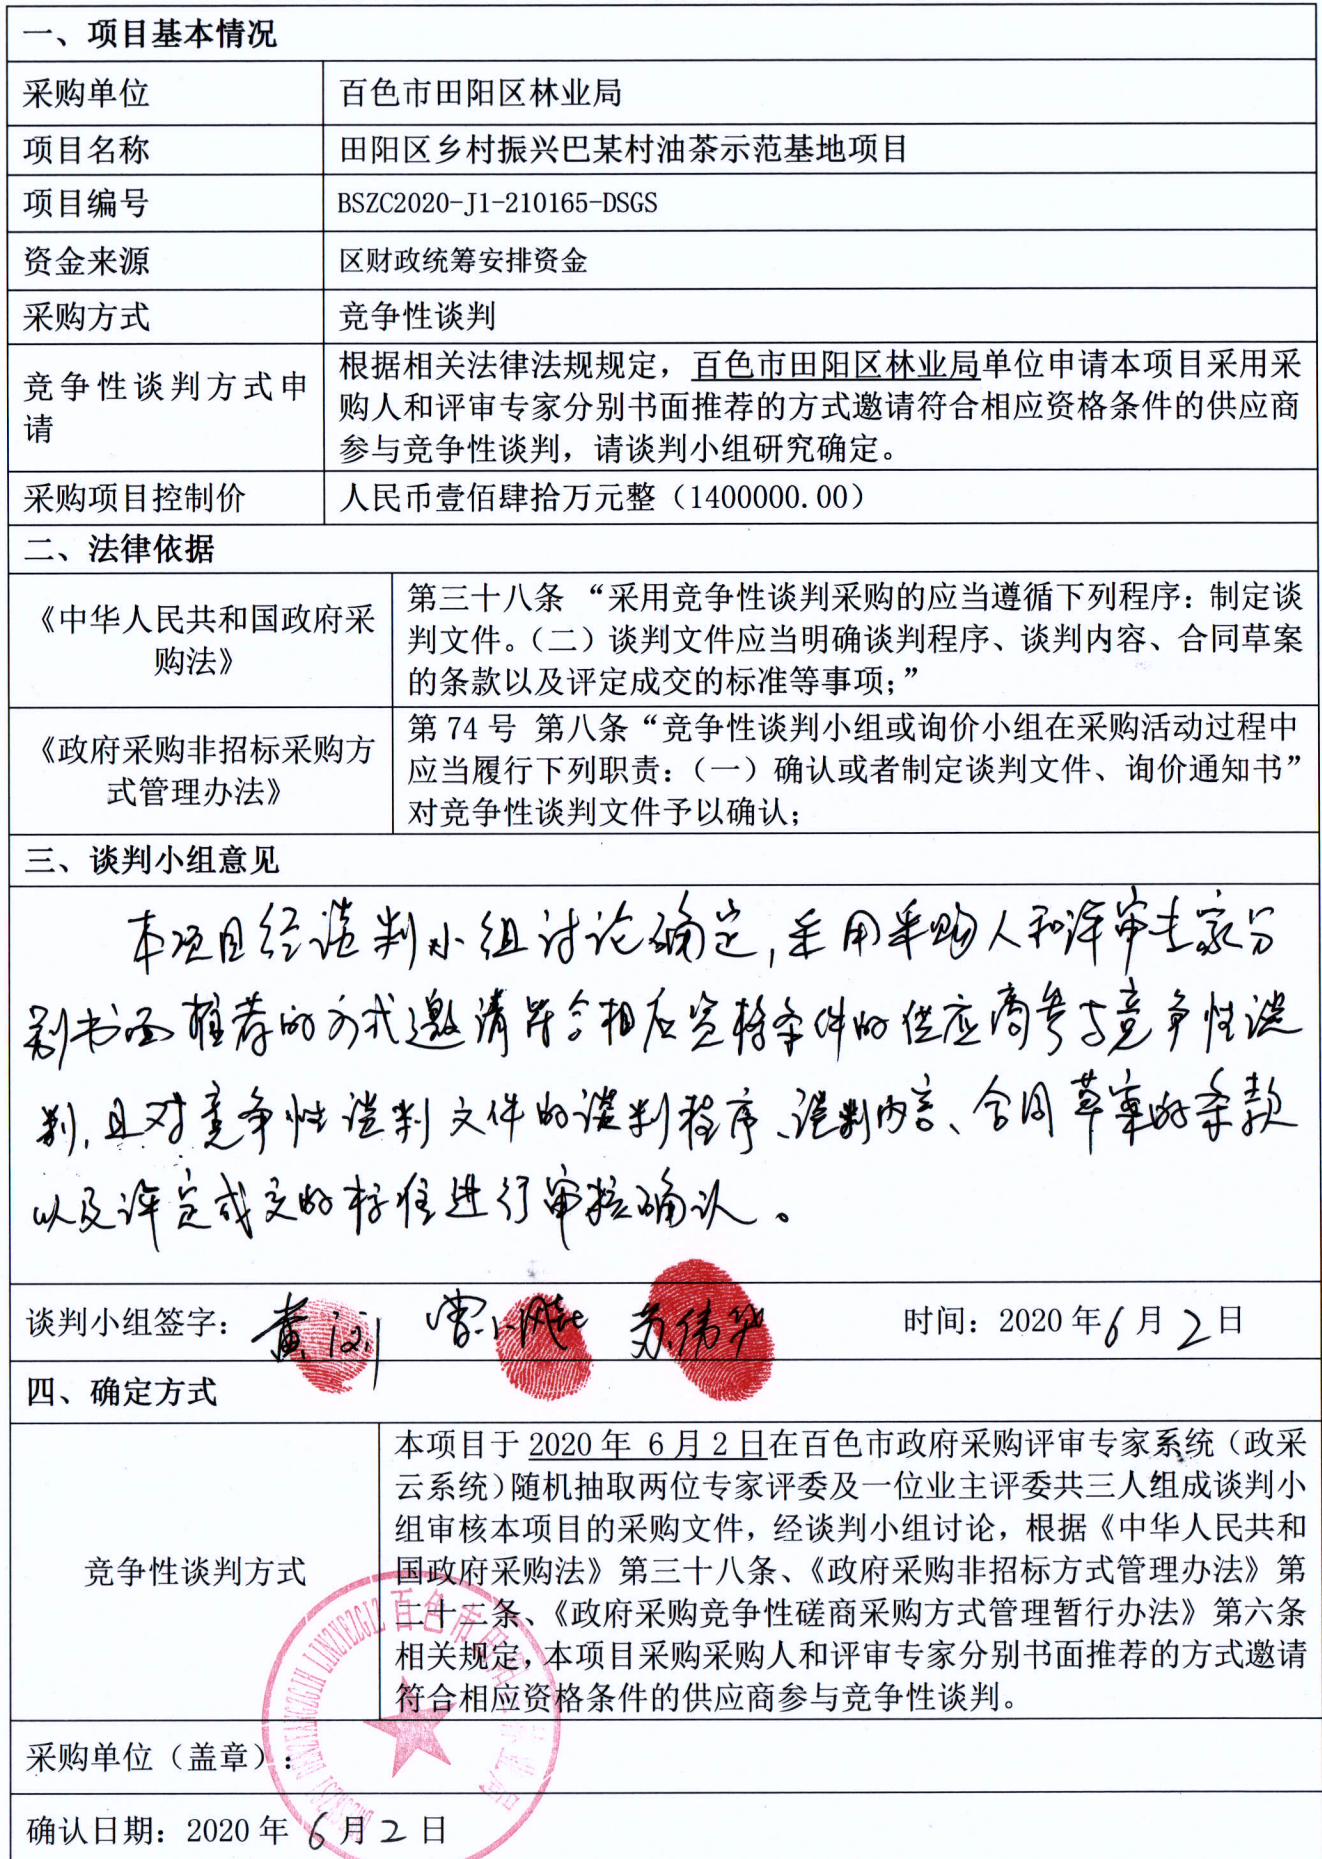 一、项目基本情况
采购单位 百色市田阳区林业局
项目名称 田阳区乡村振兴巴某村油茶示范基地项目
项目编号 BSZC2020-J1-210165-DSGS
资金来源 区财政统筹安排资金
采购方式 竞争性谈判
竞争性谈判方式申
请
根据相关法律法规规定，百色市田阳区林业局单位申请本项目采用采
购人和评审专家分别书面推荐的方式邀请符合相应资格条件的供应商
参与竞争性谈判，请谈判小组研究确定。
采购项目控制价 人民币壹佰肆拾万元整（1400000.00）
二、法律依据
《中华人民共和国政府采
购法》
第三十八条 “采用竞争性谈判采购的应当遵循下列程序：制定谈
判文件。（二）谈判文件应当明确谈判程序、谈判内容、合同草案
的条款以及评定成交的标准等事项；”
《政府采购非招标采购方
式管理办法》
第 74 号 第八条“竞争性谈判小组或询价小组在采购活动过程中
应当履行下列职责：（一）确认或者制定谈判文件、询价通知书”
对竞争性谈判文件予以确认；
三、谈判小组意见
本项目经谈判小组讨论确定，采用采购人和评审专家分
别书面推荐的方式邀请符合相应资格条件的供应商参与竞争性谈
判，且对竞争性谈判文件的谈判程序、谈判内容、合同草案的条款
以及评定成交的标准进行审核确认。
谈判小组签字： 时间：2020 年 6 月 2 日
四、确定方式
竞争性谈判方式
本项目于 2020 年 6 月 2 日在百色市政府采购评审专家系统（政采
云系统）随机抽取两位专家评委及一位业主评委共三人组成谈判小
组审核本项目的采购文件，经谈判小组讨论，根据《中华人民共和
国政府采购法》第三十八条、《政府采购非招标方式管理办法》第
二十二条、《政府采购竞争性磋商采购方式管理暂行办法》第六条
相关规定，本项目采购采购人和评审专家分别书面推荐的方式邀请
符合相应资格条件的供应商参与竞争性谈判。
采购单位（盖章）：
百色市田阳区林业局
确认日期：2020 年 6 月 2 日